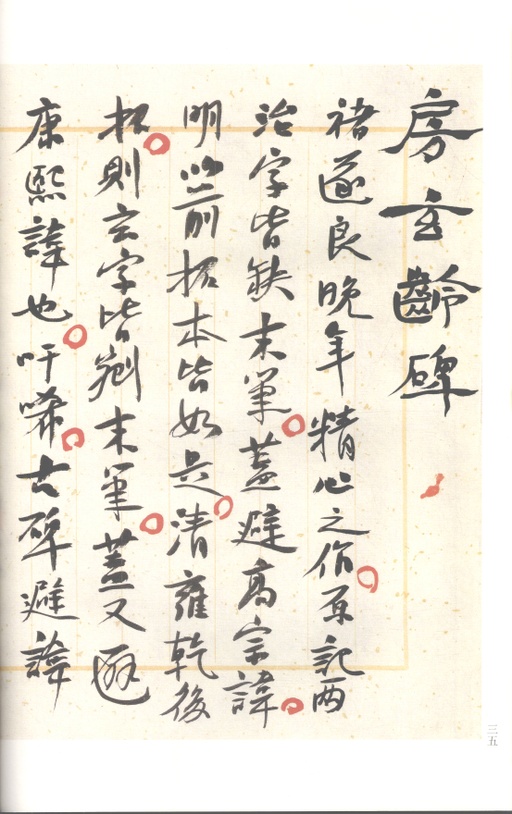 房玄齡碑
褚遂良晚年精心之作原記兩
治字皆缺末筆蓋避高宗諱
明以前拓本皆如是清雍乾後
拓則玄字皆剜末筆蓋又避
康熙諱也吁唏古碑避諱
三五